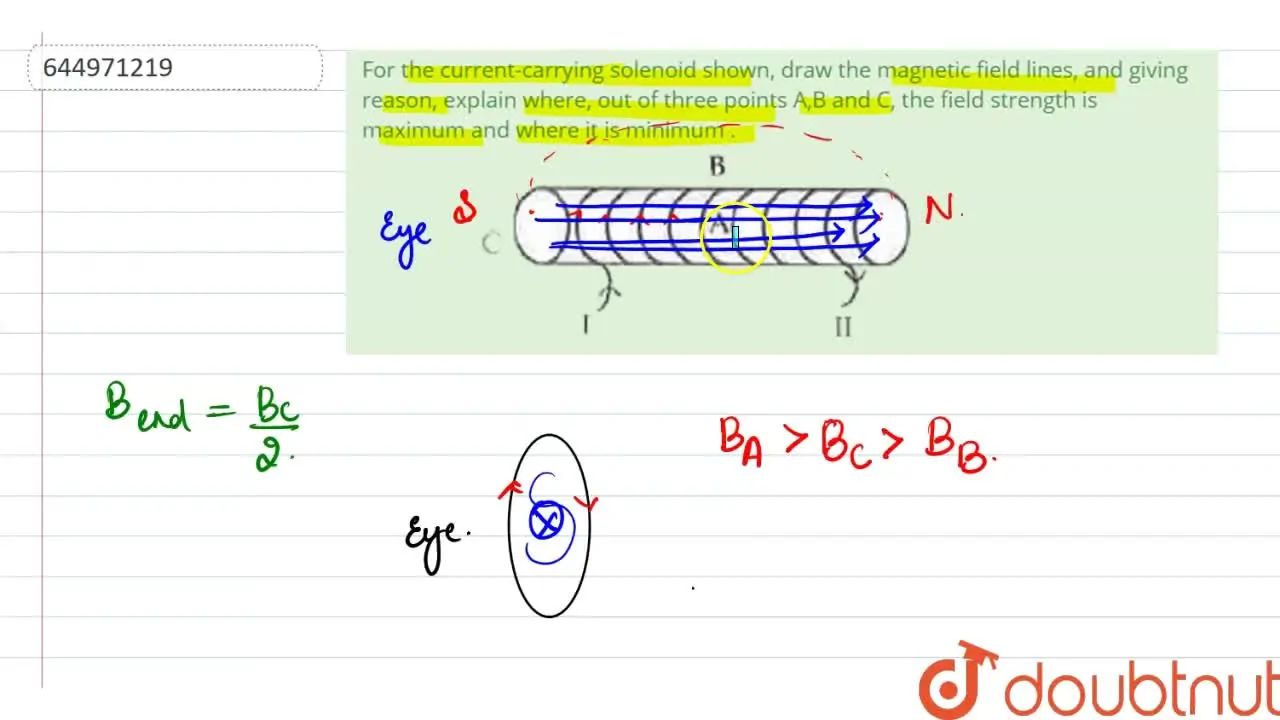 644971219
For the current-carrying solenoid shown, draw the magnetic field lines, and giving
reason, explain where, out of three points A,B and C, the field strength is
maximum and where it is minimum .
B
Eye S N.
A
C
I II
B end = Bc/2.
BA > BC > BB.
Eye. X
doubtnut